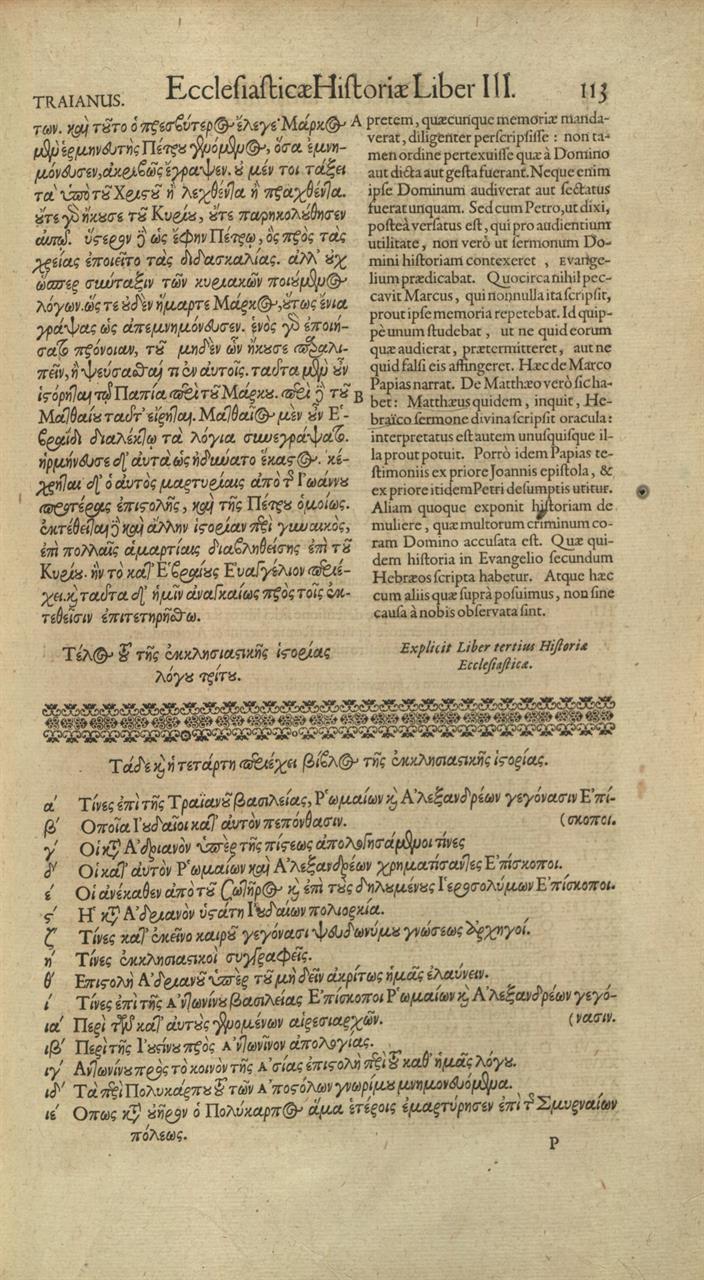 TRAIANUS. Ecclesiasticæ Historiæ Liber III. 113
των. καὶ τοῦτο ὁ πρεσβύτερος ἔλεγε· Μάρκος
μὲν ἑρμηνευτὴς Πέτρου γενόμενος, ὅσα ἐμνη-
μόνευσεν, ἀκριβῶς ἔγραψεν. οὐ μέν τοι τάξει
τὰ ὑπὸ τοῦ Χριστοῦ ἢ λεχθέντα ἢ πραχθέντα.
οὔτε γὸ ἤκουσε τοῦ Κυρίου, οὔτε παρηκολούθησεν
αὐτῷ. ὕστερον δὲ ὡς ἔφην Πέτρῳ, ὃς πρὸς τὰς
χρείας ἐποιεῖτο τὰς διδασκαλίας. ἀλλ' οὐχ
ὥσπερ σύνταξιν τῶν κυριακῶν ποιούμενος
λόγων. ὥς τε οὐδὲν ἥμαρτε Μάρκος, οὕτως ἔνια
γράψας ὡς ἀπεμνημόνευσεν. ἑνὸς γὸ ἐποιή-
σατο πρόνοιαν, τοῦ μηδὲν ὧν ἤκουσε παραλι-
πεῖν, ἢ ψεύσασθαί τι ἐν αὐτοῖς. ταῦτα μὲν οὖν
ἱστόρηται τῷ Παπίᾳ περὶ τοῦ Μάρκου. περὶ δὲ τοῦ
Ματθαίου ταῦτ' εἴρηται. Ματθαῖος μὲν οὖν Ἑ-
βραΐδι διαλέκτῳ τὰ λόγια συνεγράψατο.
ἡρμήνευσε δ' αὐτὰ ὡς ἠδύνατο ἕκαστος. κέ-
χρηται δ' ὁ αὐτὸς μαρτυρίαις ἀπὸ τῆς Ἰωάννου
προτέρας ἐπιστολῆς, καὶ τῆς Πέτρου ὁμοίως.
ἐκτέθειται δὲ καὶ ἄλλην ἱστορίαν περὶ γυναικὸς,
ἐπὶ πολλαῖς ἁμαρτίαις διαβληθείσης ἐπὶ τοῦ
Κυρίου. ἣν τὸ καθ' Ἑβραίους Εὐαγγέλιον περιέ-
χει. καὶ ταῦτα δ' ἡμῖν ἀναγκαίως πρὸς τοῖς ἐκ-
τεθεῖσιν ἐπιτετηρήσθω.
Τέλος τῆς ἐκκλησιαστικῆς ἱστορίας
λόγου τρίτου.
A pretem, quæcunque memoriæ manda-
verat, diligenter perscripsisse : non ta-
men ordine pertexuisse quæ à Domino
aut dicta aut gesta fuerant. Neque enim
ipse Dominum audiverat aut sectatus
fuerat unquam. Sed cum Petro, ut dixi,
posteà versatus est, qui pro audientium
utilitate, non verò ut sermonum Do-
mini historiam contexeret, Evange-
lium prædicabat. Quocirca nihil pec-
cavit Marcus, qui nonnulla ita scripsit,
prout ipse memoria repetebat. Id quip-
pè unum studebat, ut ne quid eorum
quæ audierat, prætermitteret, aut ne
quid falsi eis affingeret. Hæc de Marco
Papias narrat. De Matthæo verò sic ha-
B bet: Matthæus quidem, inquit, He-
braïco sermone divina scripsit oracula:
interpretatus est autem unusquisque il-
la prout potuit. Porrò idem Papias te-
stimoniis ex priore Joannis epistola, &
ex priore itidem Petri desumptis utitur.
Aliam quoque exponit historiam de
muliere, quæ multorum criminum co-
ram Domino accusata est. Quæ qui-
dem historia in Evangelio secundum
Hebræos scripta habetur. Atque hæc
cum aliis quæ suprà posuimus, non sine
causa à nobis observata sint.
Explicit Liber tertius Historiæ
Ecclesiasticæ.
Τάδε καὶ ἡ τετάρτη περιέχει βίβλος τῆς ἐκκλησιαστικῆς ἱστορίας.
α΄ Τίνες ἐπὶ τῆς Τραϊανοῦ βασιλείας, Ῥωμαίων καὶ Ἀλεξανδρέων γεγόνασιν Ἐπί-
β΄ Ὁποῖα Ἰουδαῖοι κατ' αὐτὸν πεπόνθασιν. (σκοποι.
γ΄ Οἱ κατὰ Ἀδριανὸν ὑπὲρ τῆς πίστεως ἀπολογησάμενοι τίνες
δ΄ Οἱ κατ' αὐτὸν Ῥωμαίων καὶ Ἀλεξανδρέων χρηματίσαντες Ἐπίσκοποι.
ε΄ Οἱ ἀνέκαθεν ἀπὸ τοῦ Σωτῆρος καὶ ἐπὶ τοὺς δηλουμένους Ἱεροσολύμων Ἐπίσκοποι.
ϛ΄ Ἡ κατὰ Ἀδριανὸν ὑστάτη Ἰουδαίων πολιορκία.
ζ΄ Τίνες κατ' ἐκεῖνο καιροῦ γεγόνασι ψευδωνύμου γνώσεως ἀρχηγοί.
η΄ Τίνες ἐκκλησιαστικοὶ συγγραφεῖς.
θ΄ Ἐπιστολὴ Ἀδριανοῦ ὑπὲρ τοῦ μὴ δεῖν ἀκρίτως ἡμᾶς ἐλαύνειν.
ι΄ Τίνες ἐπὶ τῆς Ἀντωνίνου βασιλείας Ἐπίσκοποι Ῥωμαίων καὶ Ἀλεξανδρέων γεγό-
ια΄ Περὶ τῶν κατ' αὐτοὺς γενομένων αἱρεσιαρχῶν. (νασιν.
ιβ΄ Περὶ τῆς Ἰουστίνου πρὸς Ἀντωνῖνον ἀπολογίας.
ιγ΄ Ἀντωνίνου πρὸς τὸ κοινὸν τῆς Ἀσίας ἐπιστολὴ περὶ τοῦ καθ' ἡμᾶς λόγου.
ιδ΄ Τὰ περὶ Πολυκάρπου τοῦ τῶν Ἀποστόλων γνωρίμου μνημονευόμενα.
ιε΄ Ὅπως κατὰ Οὐῆρον ὁ Πολύκαρπος ἅμα ἑτέροις ἐμαρτύρησεν ἐπὶ τῆς Σμυρναίων
πόλεως.
P